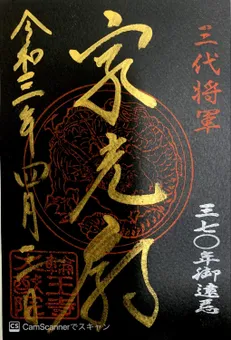 三代将軍
三七〇年御遠忌
家光廟
令和三年四月
輪王寺
CS CamScannerでスキャン